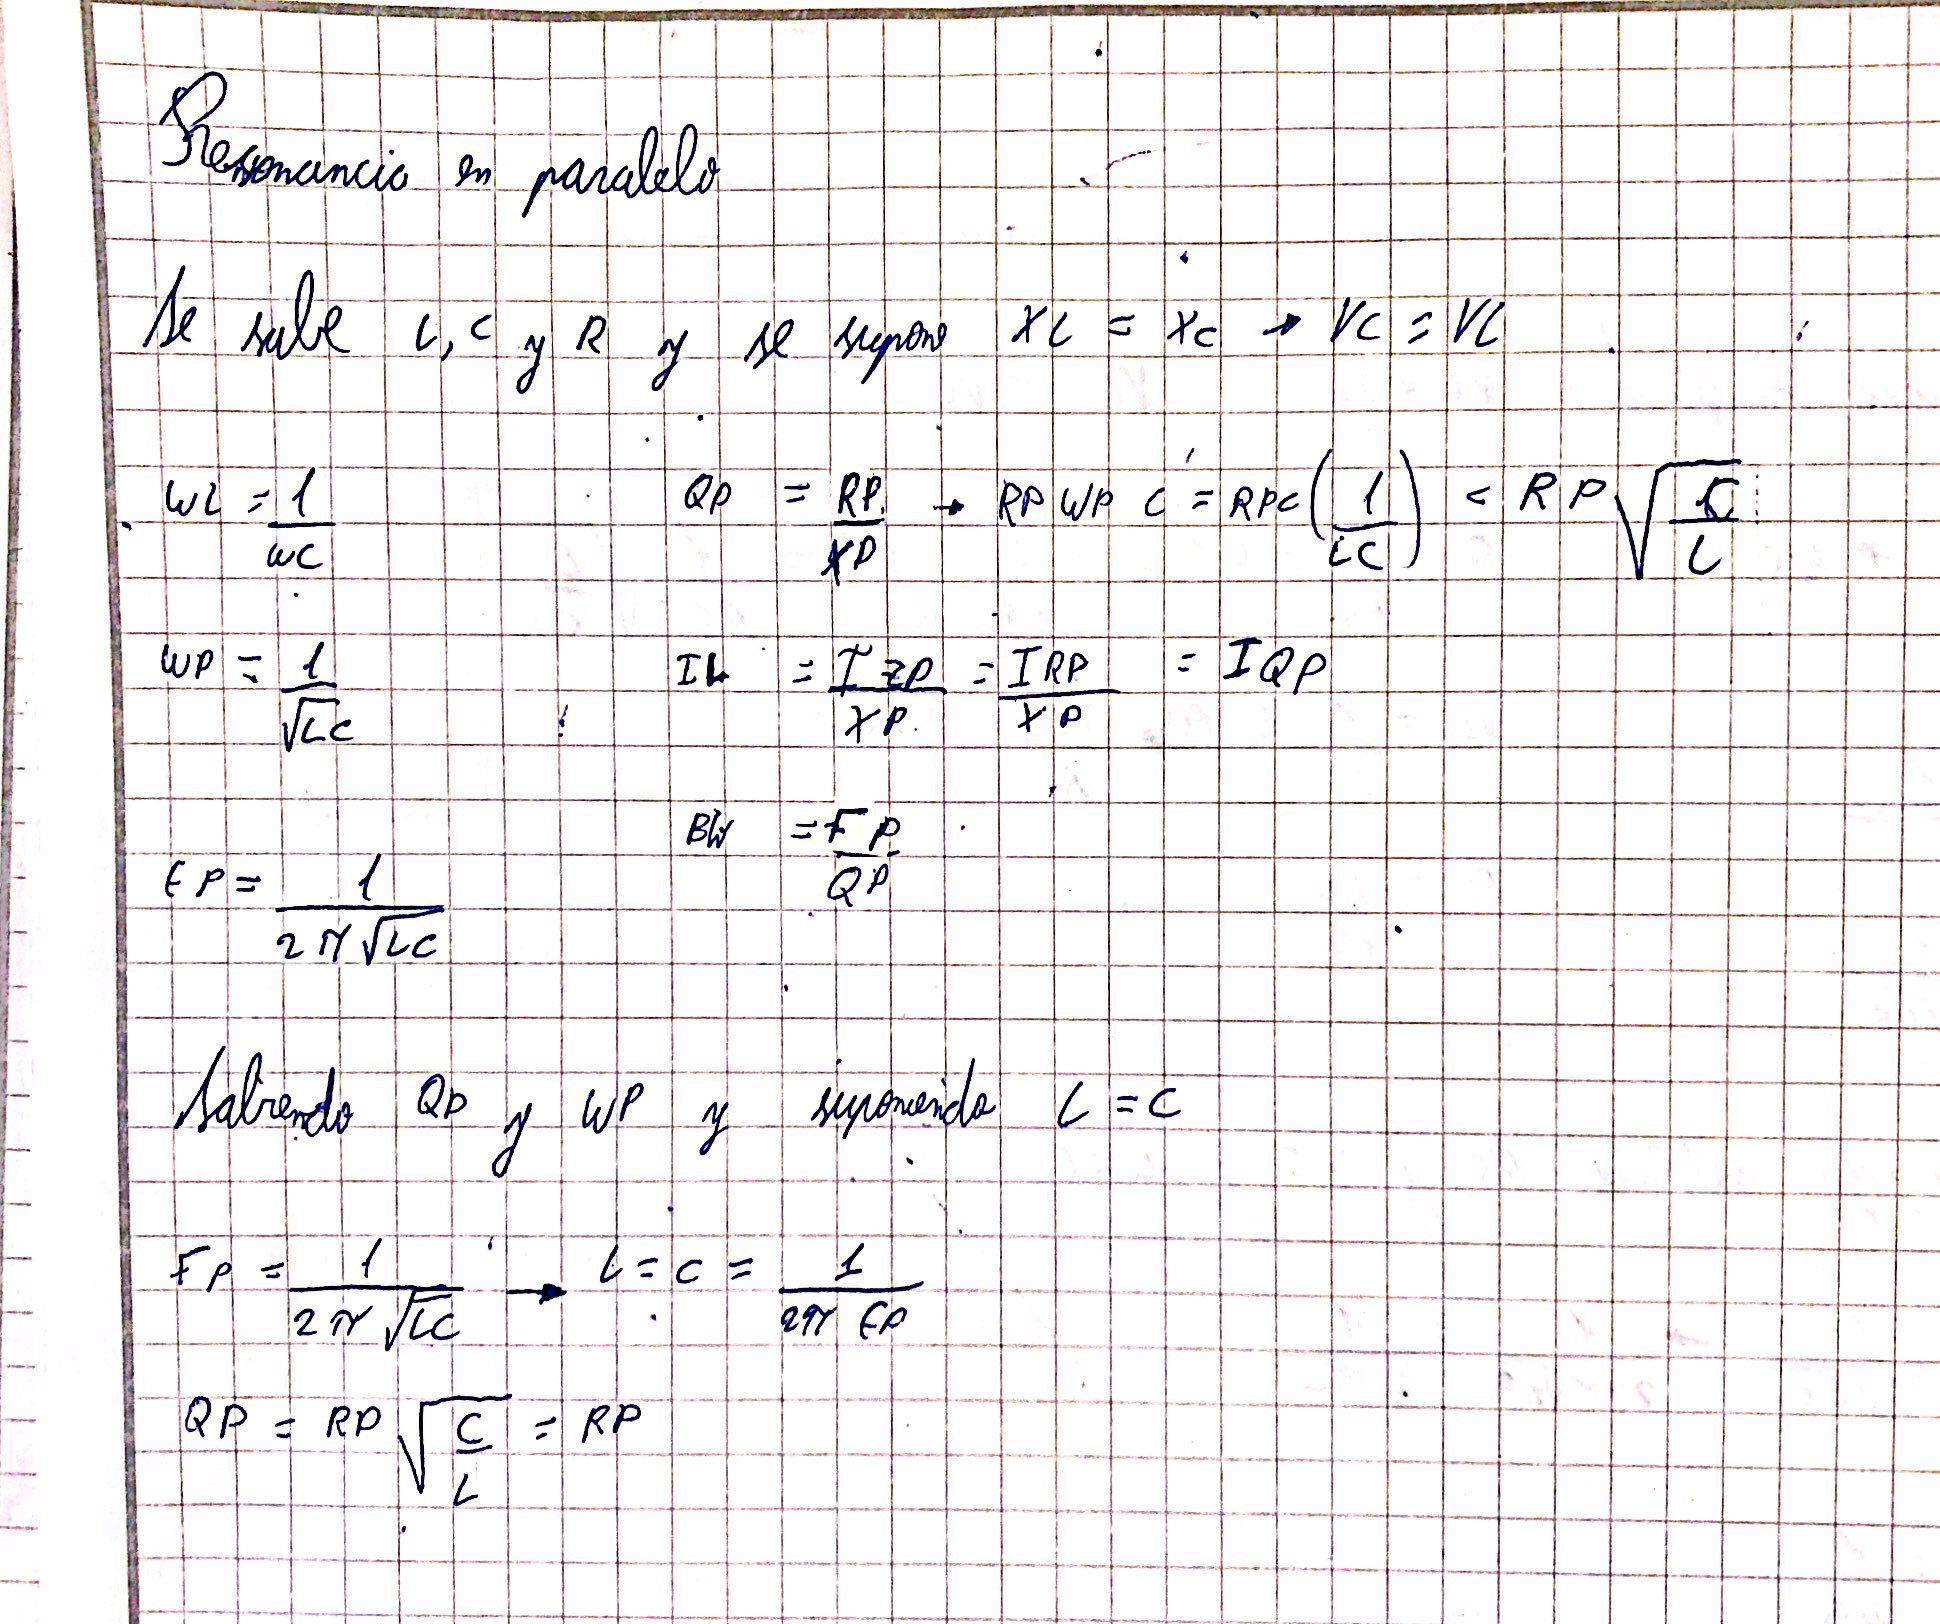 Resonancia en paralelo
Se sabe L, C y R y se supone XL = XC → VC = VL
WL = 1/WC QP = RP/XP → RP WP C = RPC (1/LC) = RP √(C/L)
WP = 1/√LC IL = I ZP/XP = I RP/XP = I QP
BW = FP/QP
FP = 1/2π√LC
Sabiendo QP y WP y suponiendo L = C
FP = 1/2π√LC → L = C = 1/2π FP
QP = RP √(C/L) = RP